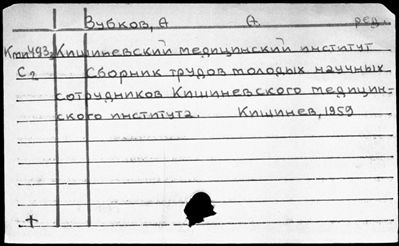 Зубков, А А ред.
Кишиневский медицинский институт
С2 Сборник трудов молодых научных
сотрудников Кишиневского медицин-
ского института. Кишинев, 1959